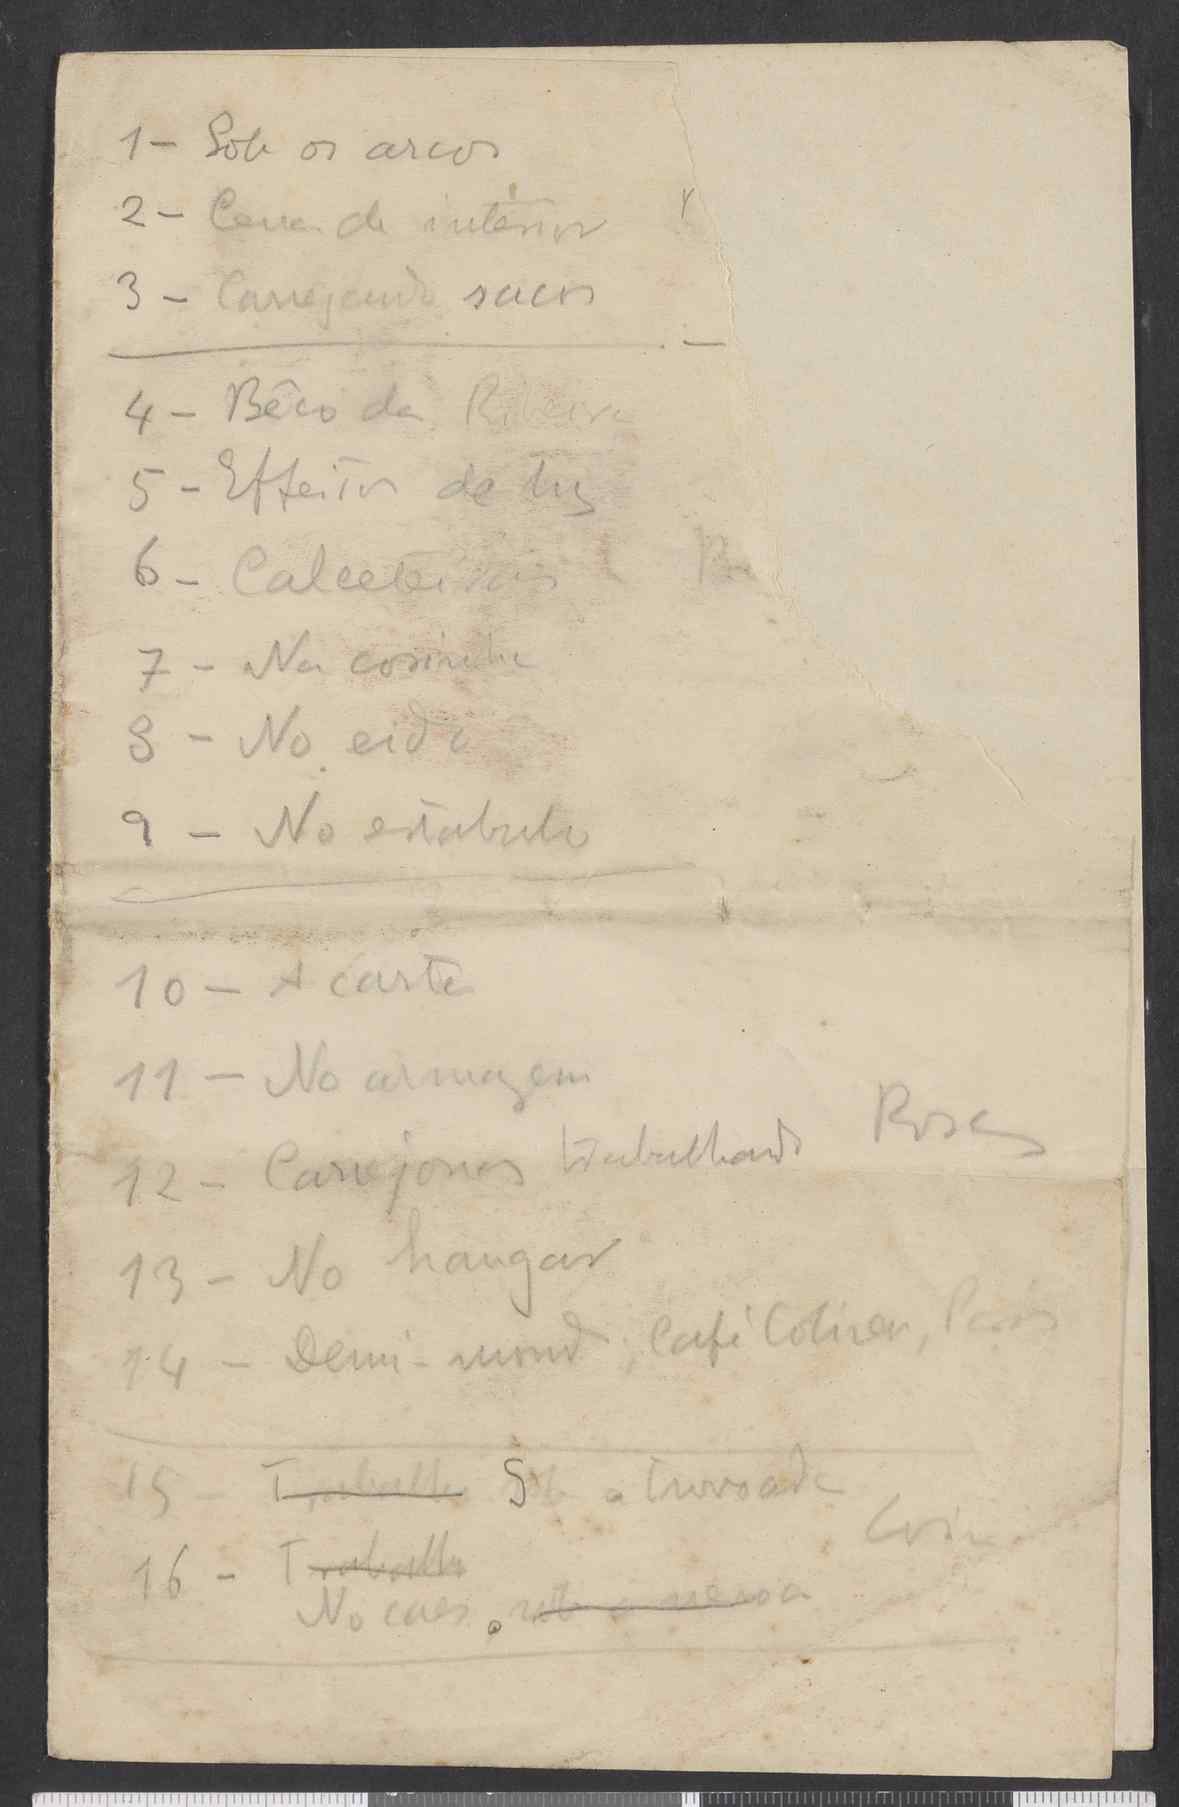 1 - Sob os arcos
2 - Cena de interior
3 - Carrejando sacos
4 - Bêco da Ribeira
5 - Effeitos de luz
6 - Calceteiros
7 - Na cosinha
8 - No eido
9 - No estabulo
10 - A carta
11 - No armazem
12 - Carrejonas trabalhando Rosas
13 - No hangar
14 - Demi-mond, Café Coliseu, Paris
15 - Trabalho Sob a trovoada
16 - Trabalho
No caes. sob a nevoa